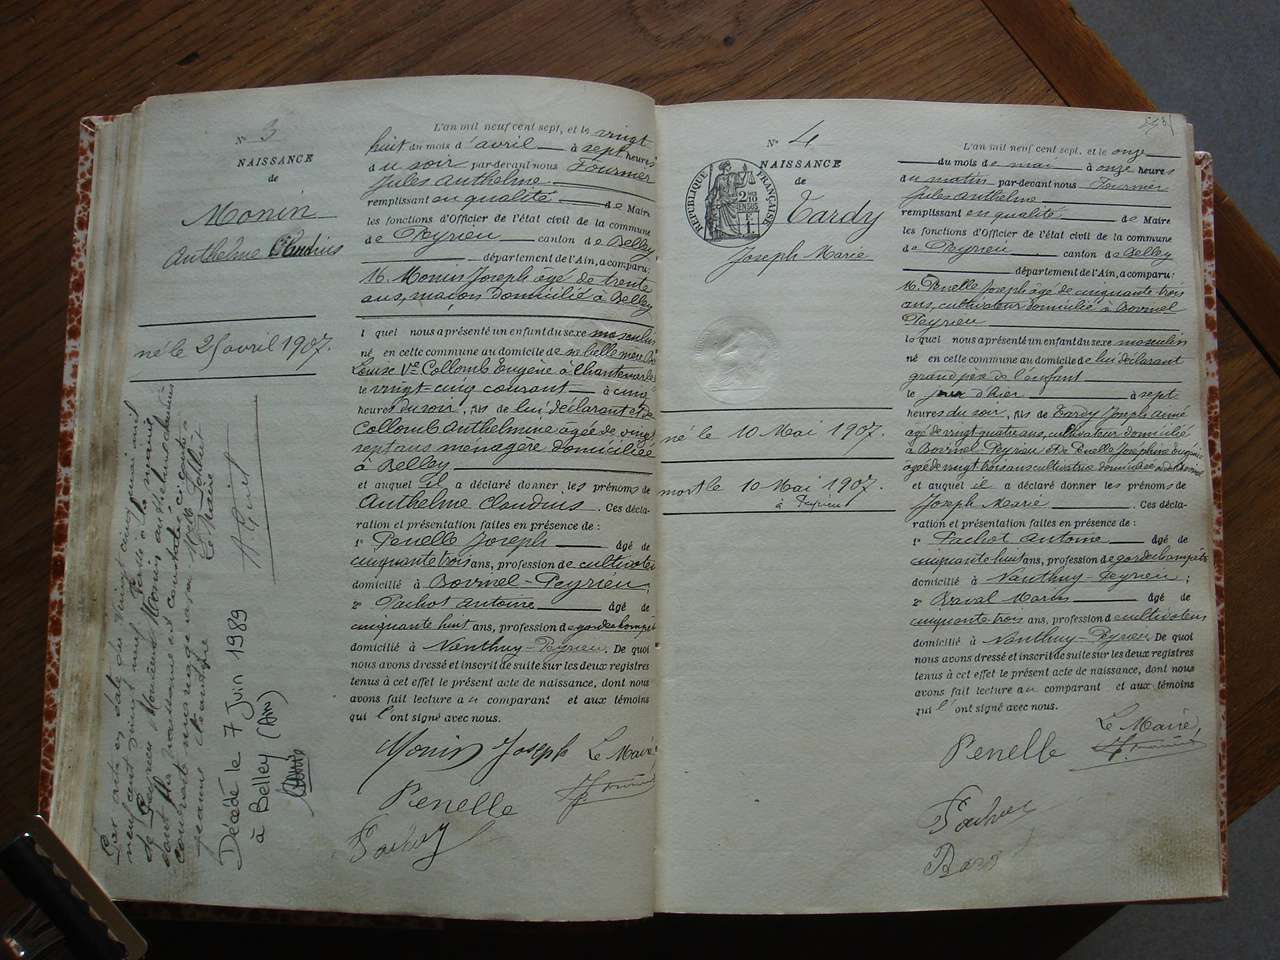 N° 3
NAISSANCE
de
Monin
Anthelme Claudius
né le 25 avril 1907.
Décédé le 7 Juin 1989
à Belley (Ain)
L'an mil neuf cent sept, et le vingt-
huit du mois d'avril à sept heures
du soir par-devant nous Fournier
Jules Anthelme
remplissant en qualité de Maire
les fonctions d'Officier de l'état civil de la commune
de Peyrieu canton de Belley
département de l'Ain, a comparu:
M. Monin Joseph âgé de trente
ans, maçon domicilié à Belley
lequel nous a présenté un enfant du sexe masculin
né en cette commune au domicile de sa belle mère
Louise Vve Collomb Eugène à
le vingt-cinq courant à cinq
heures du soir, fils de lui déclarant et de
Collomb Anthelmine âgée de vingt
sept ans ménagère domiciliée
à Belley
et auquel il a déclaré donner les prénoms de
Anthelme Claudius. Ces décla-
ration et présentation faites en présence de :
1° Penelle Joseph âgé de
cinquante trois ans, profession de cultivateur
domicilié à Bovinel-Peyrieu;
2° Pachot Antoine âgé de
cinquante huit ans, profession de garde champêtre
domicilié à Nanthuy-Peyrieu. De quoi
nous avons dressé et inscrit de suite sur les deux registres
tenus à cet effet le présent acte de naissance, dont nous
avons fait lecture au comparant et aux témoins
qui l'ont signé avec nous.
Monin Joseph Le Maire,
Penelle
Pachot
N° 4
NAISSANCE
de
RÉPUBLIQUE FRANÇAISE
Tardy
Joseph Marie
né le 10 Mai 1907.
mort le 10 Mai 1907.
à Peyrieu
L'an mil neuf cent sept, et le onze
du mois de mai à onze heures
du matin par-devant nous Fournier
Jules Anthelme
remplissant en qualité de Maire
les fonctions d'Officier de l'état civil de la commune
de Peyrieu canton de Belley
département de l'Ain, a comparu:
M. Penelle Joseph âgé de cinquante trois
ans, cultivateur domicilié à Bovinel
Peyrieu
lequel nous a présenté un enfant du sexe masculin
né en cette commune au domicile de lui déclarant
grand père de l'enfant
le jour d'hier à sept
heures du soir, fils de Tardy Joseph Aimé
âgé de vingt quatre ans, cultivateur domicilié
à Bovinel-Peyrieu et de Penelle Joséphine
âgée de vingt trois ans cultivatrice
et auquel il a déclaré donner les prénoms de
Joseph Marie. Ces décla-
ration et présentation faites en présence de :
1° Pachot Antoine âgé de
cinquante huit ans, profession de garde champêtre
domicilié à Nanthuy-Peyrieu;
2° Marius âgé de
cinquante trois ans, profession de cultivateur
domicilié à Nanthuy-Peyrieu. De quoi
nous avons dressé et inscrit de suite sur les deux registres
tenus à cet effet le présent acte de naissance, dont nous
avons fait lecture au comparant et aux témoins
qui l'ont signé avec nous.
Le Maire,
Penelle
Pachot